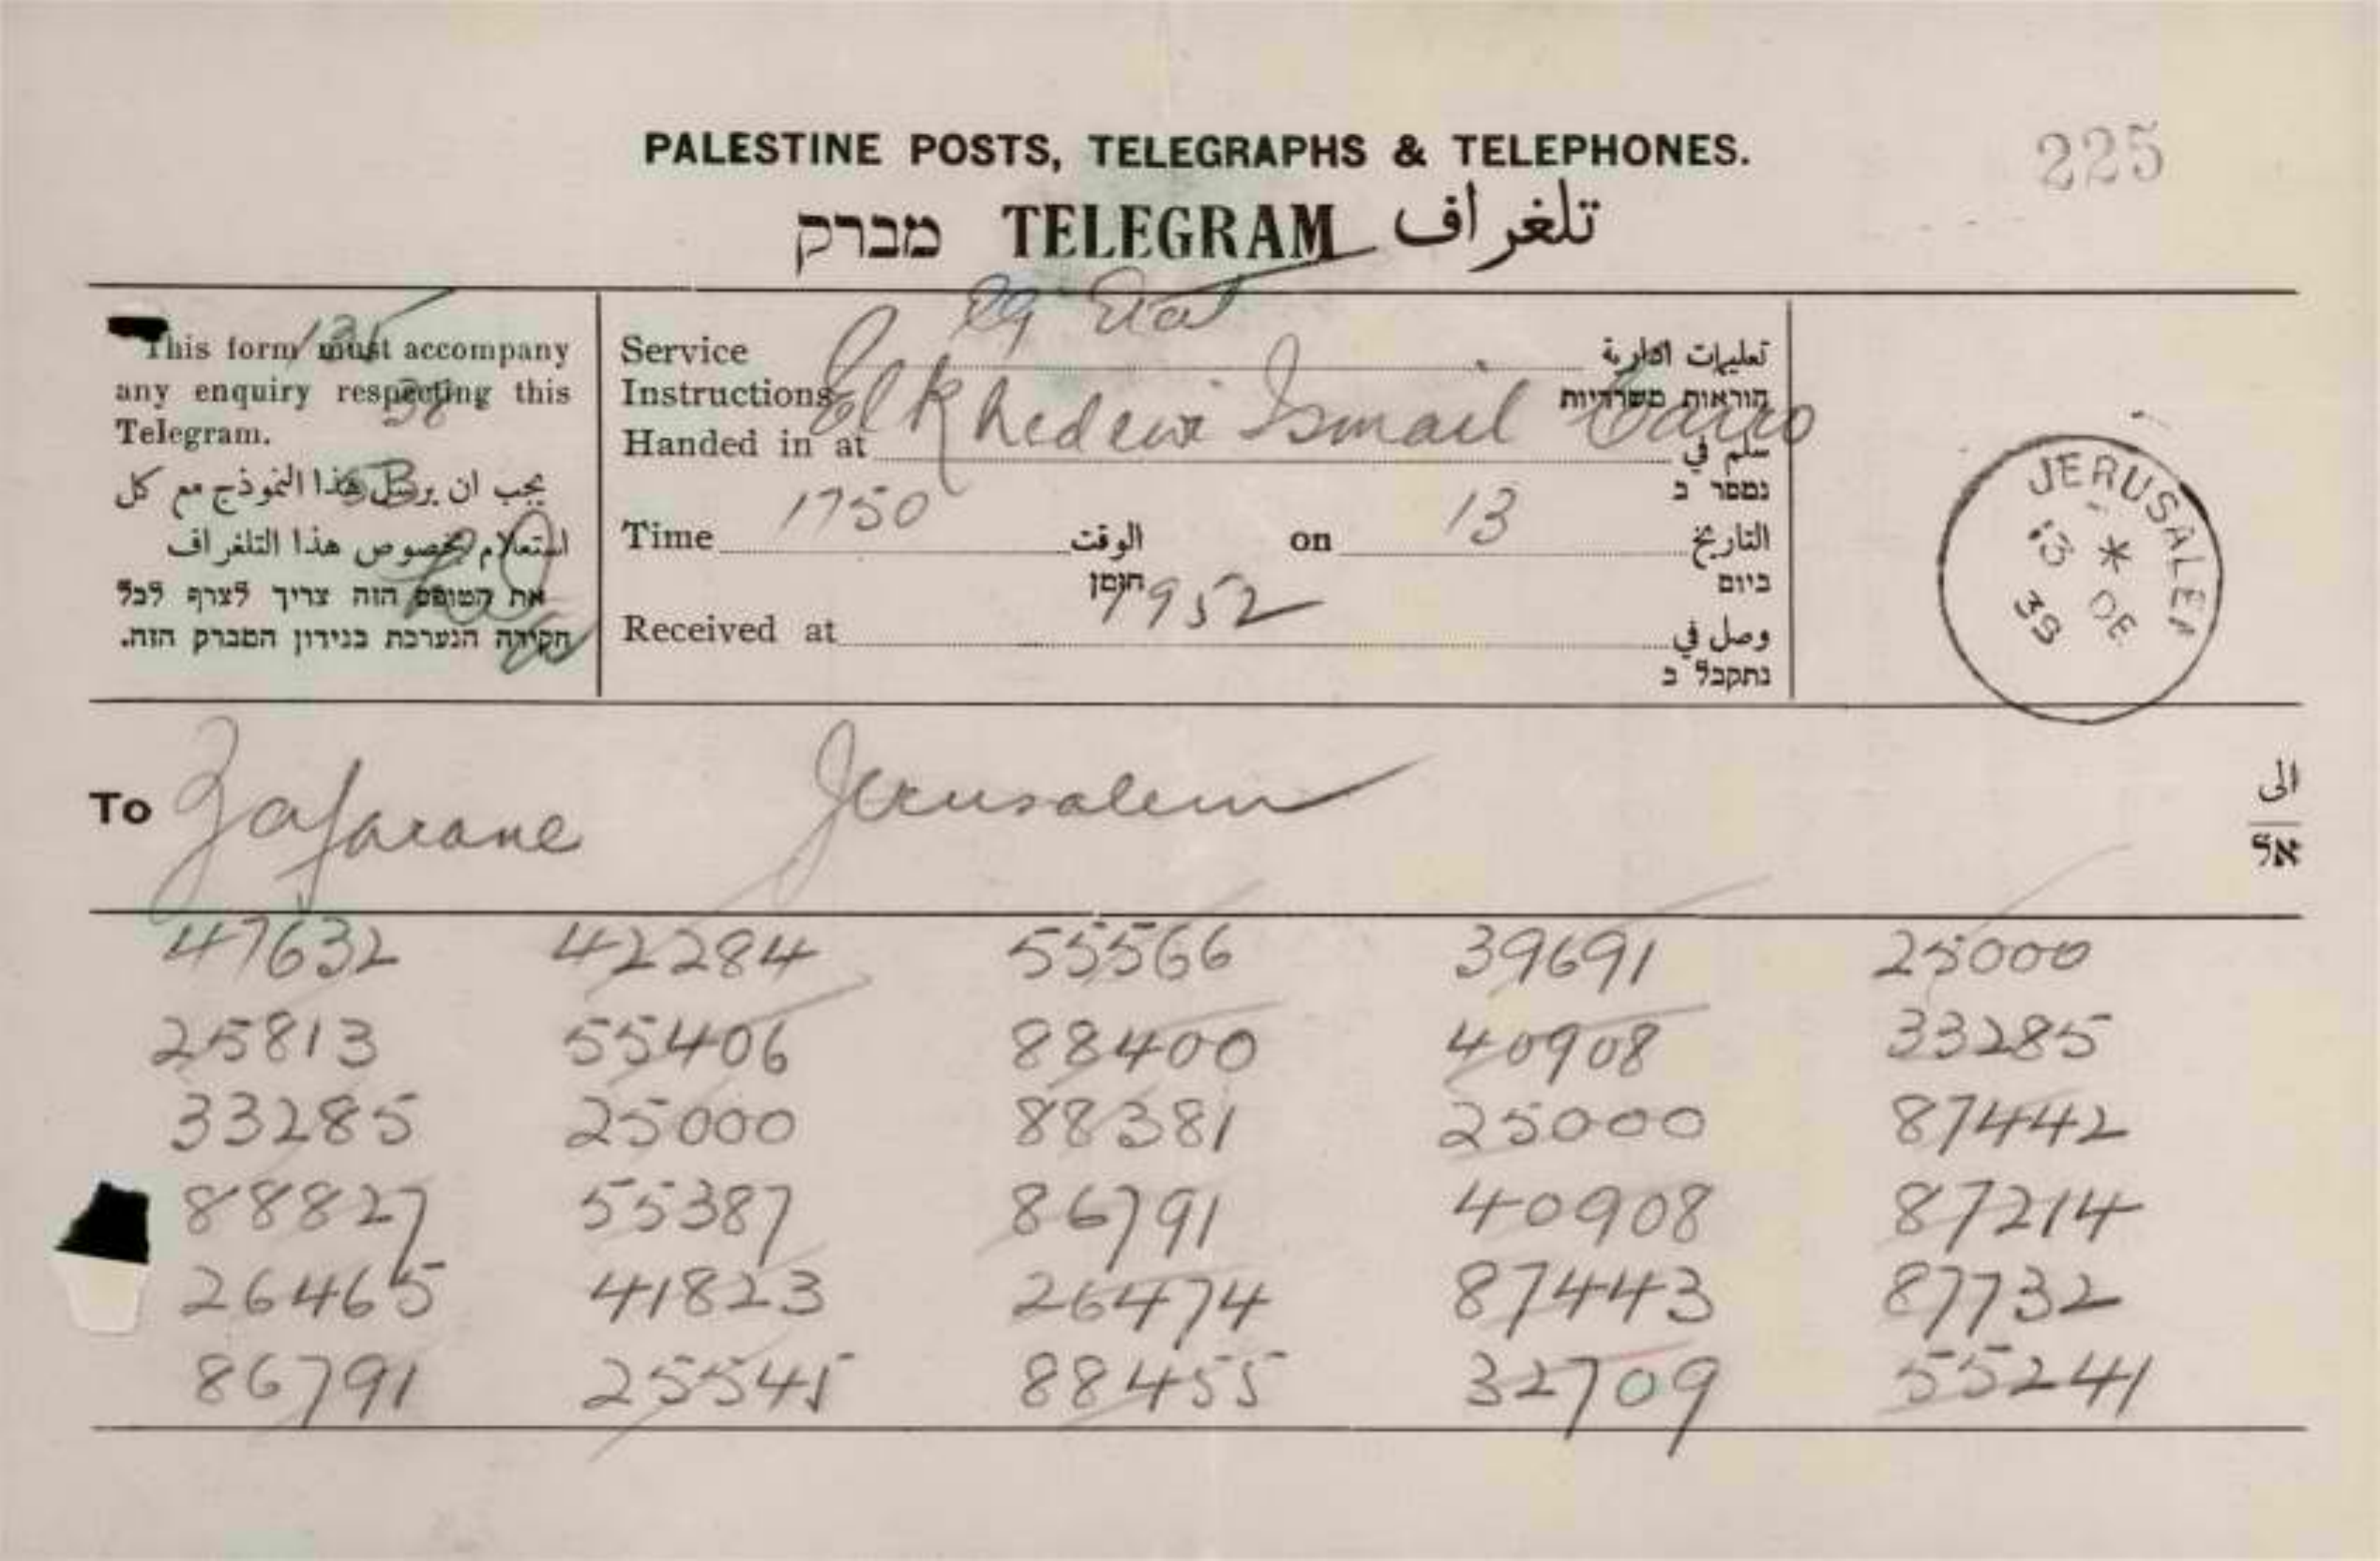 PALESTINE POSTS, TELEGRAPHS & TELEPHONES.
225
מברק TELEGRAM تلغراف
This form must accompany
any enquiry respecting this
Telegram.
يجب ان يرسل هذا النموذج مع كل
استعلام بخصوص هذا التلغراف
את הטופס הזה צריך לצרף לכל
חקירה הנערכת בנידון המברק הזה.
135
38
Service
Instructions
تعليمات ادارية
הוראות משרדיות
Handed in at El Khedewi Ismail Cairo سلم في
נמסר ב
Time 1750 الوقت on 13 التاريخ
הזמן ביום
Received at 1952 وصل في
נתקבל ב
JERUSALEM
13 DE
39
To Zafarane Jerusalem الى
אל
47632 42284 55566 39691 25000
25813 55406 88400 40908 33285
33285 25000 88381 25000 87442
88827 55387 86791 40908 87214
26465 41823 26474 87443 87732
86791 25545 88455 32709 55241